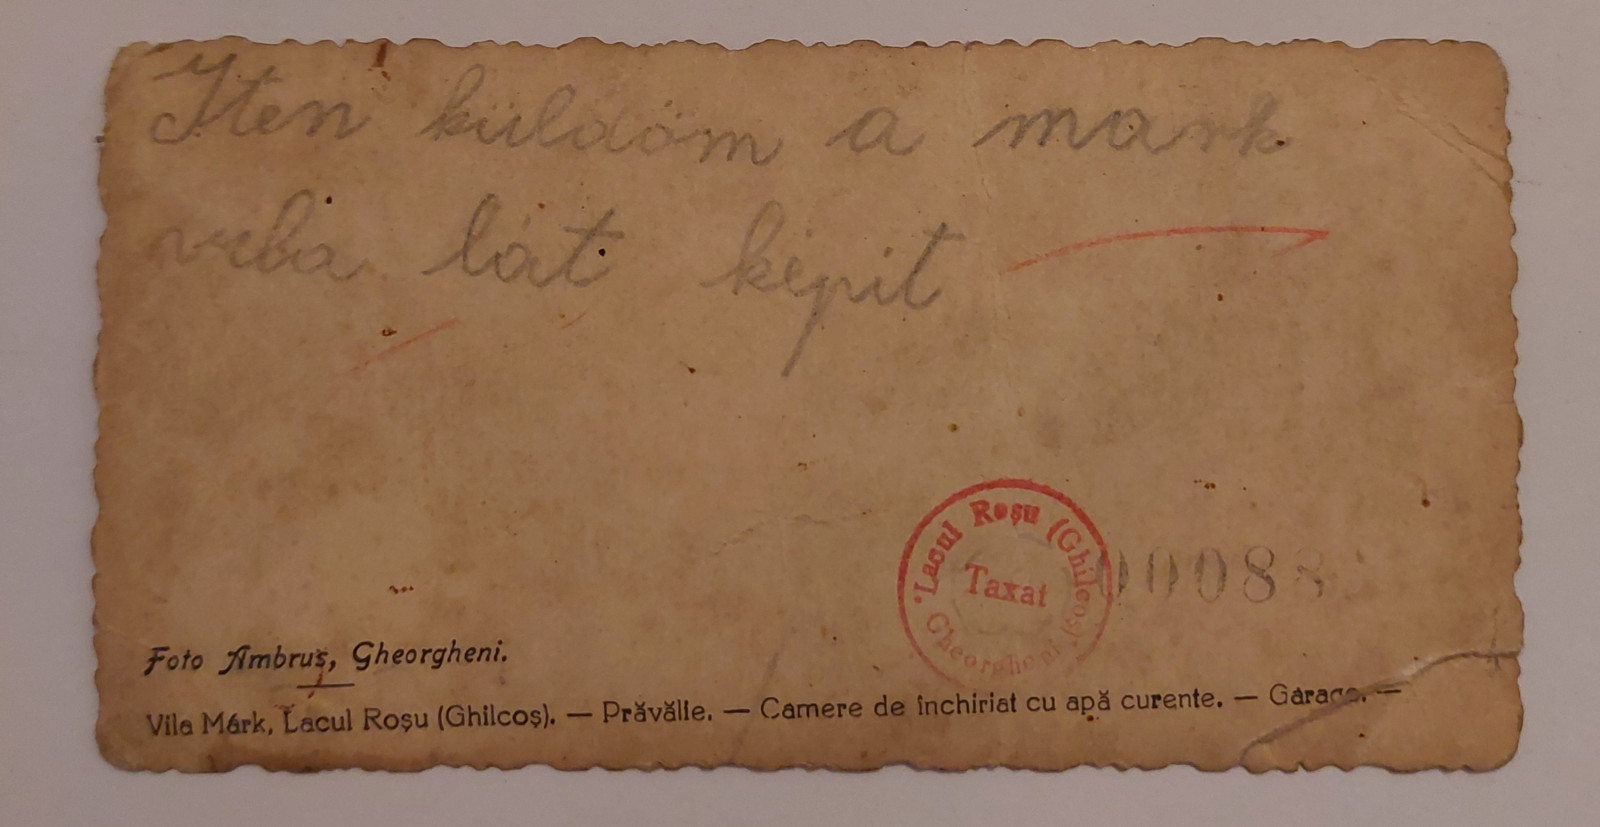 Iten küldöm a mark
vila lát képit
Lacul Roşu (Ghilcoş)
Taxat
Gheorgheni
00088
Foto Ambruş, Gheorgheni.
Vila Márk, Lacul Roşu (Ghilcoş). — Prăvălie. — Camere de închiriat cu apă curente. — Garage. —